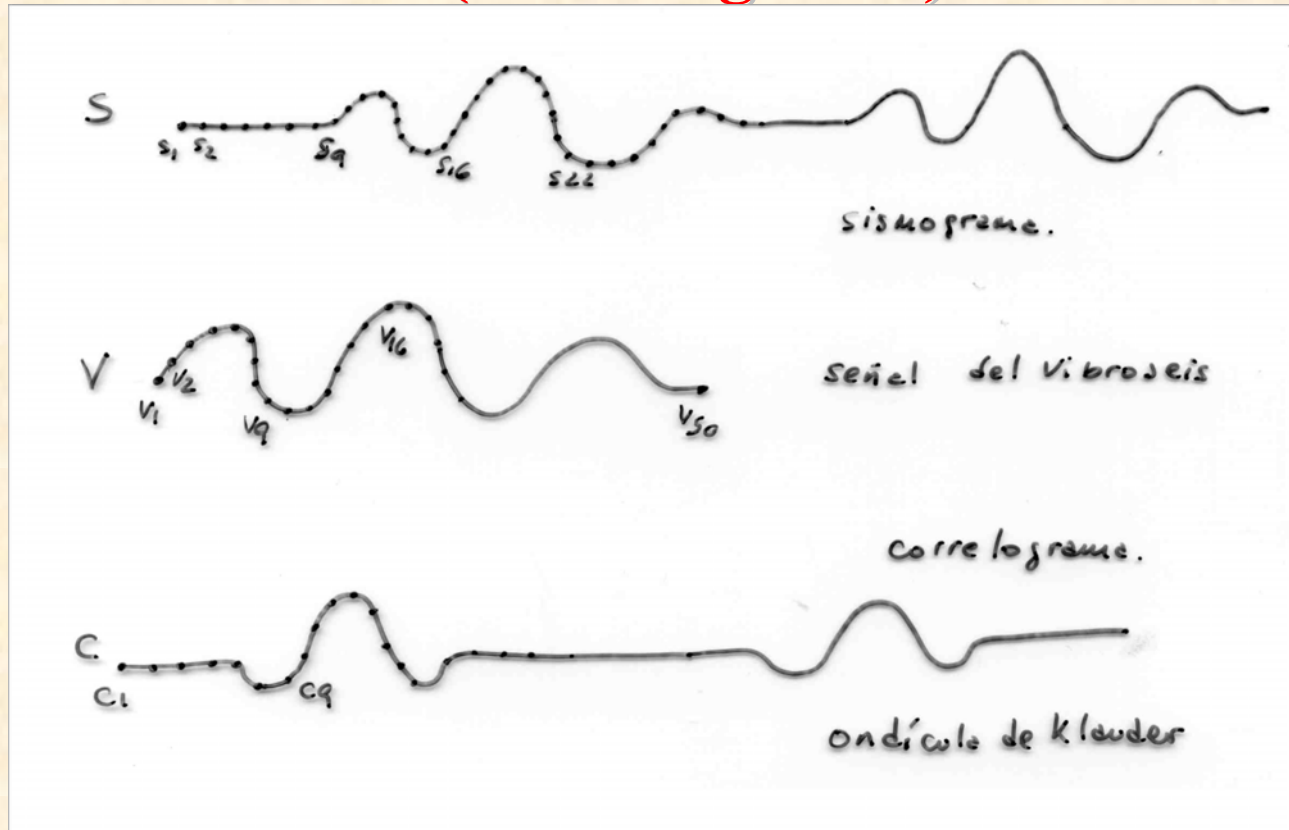 S
s1 s2 s9 s16 s22
sismograma.
V
v1 v2 v9 v16 v50
señal del Vibroseis
correlograma.
C
c1 c9
ondícula de Klauder